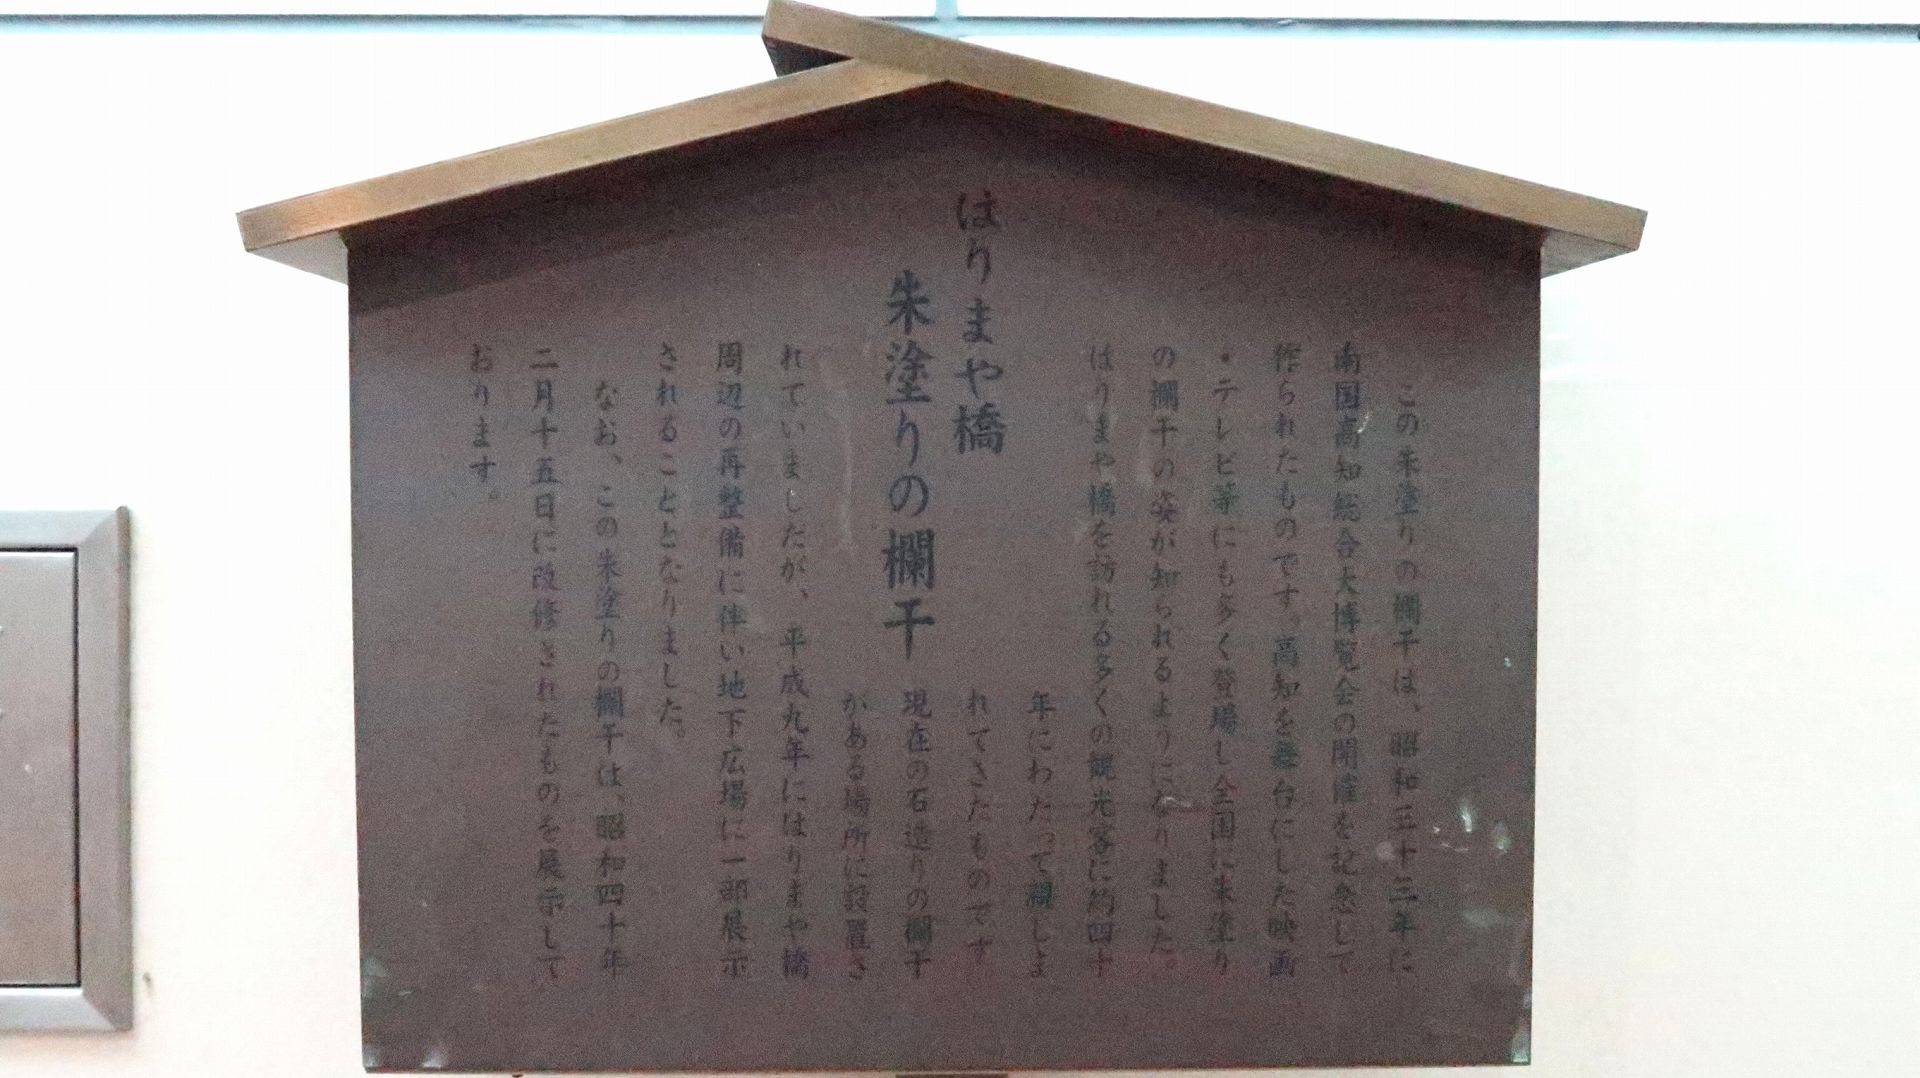 はりまや橋
朱塗りの欄干
この朱塗りの欄干は、昭和三十三年に
南国高知総合大博覧会の開催を記念して
作られたものです。高知を舞台にした映画
・テレビ等にも多く登場し全国に朱塗り
の欄干の姿が知られるようになりました。
はりまや橋を訪れる多くの観光客に約四十
年にわたって親しま
れてきたものです
現在の石造りの欄干
がある場所に設置さ
れていましたが、平成九年にはりまや橋
周辺の再整備に伴い地下広場に一部展示
されることとなりました。
なお、この朱塗りの欄干は、昭和四十年
二月十五日に改修されたものを展示して
おります。